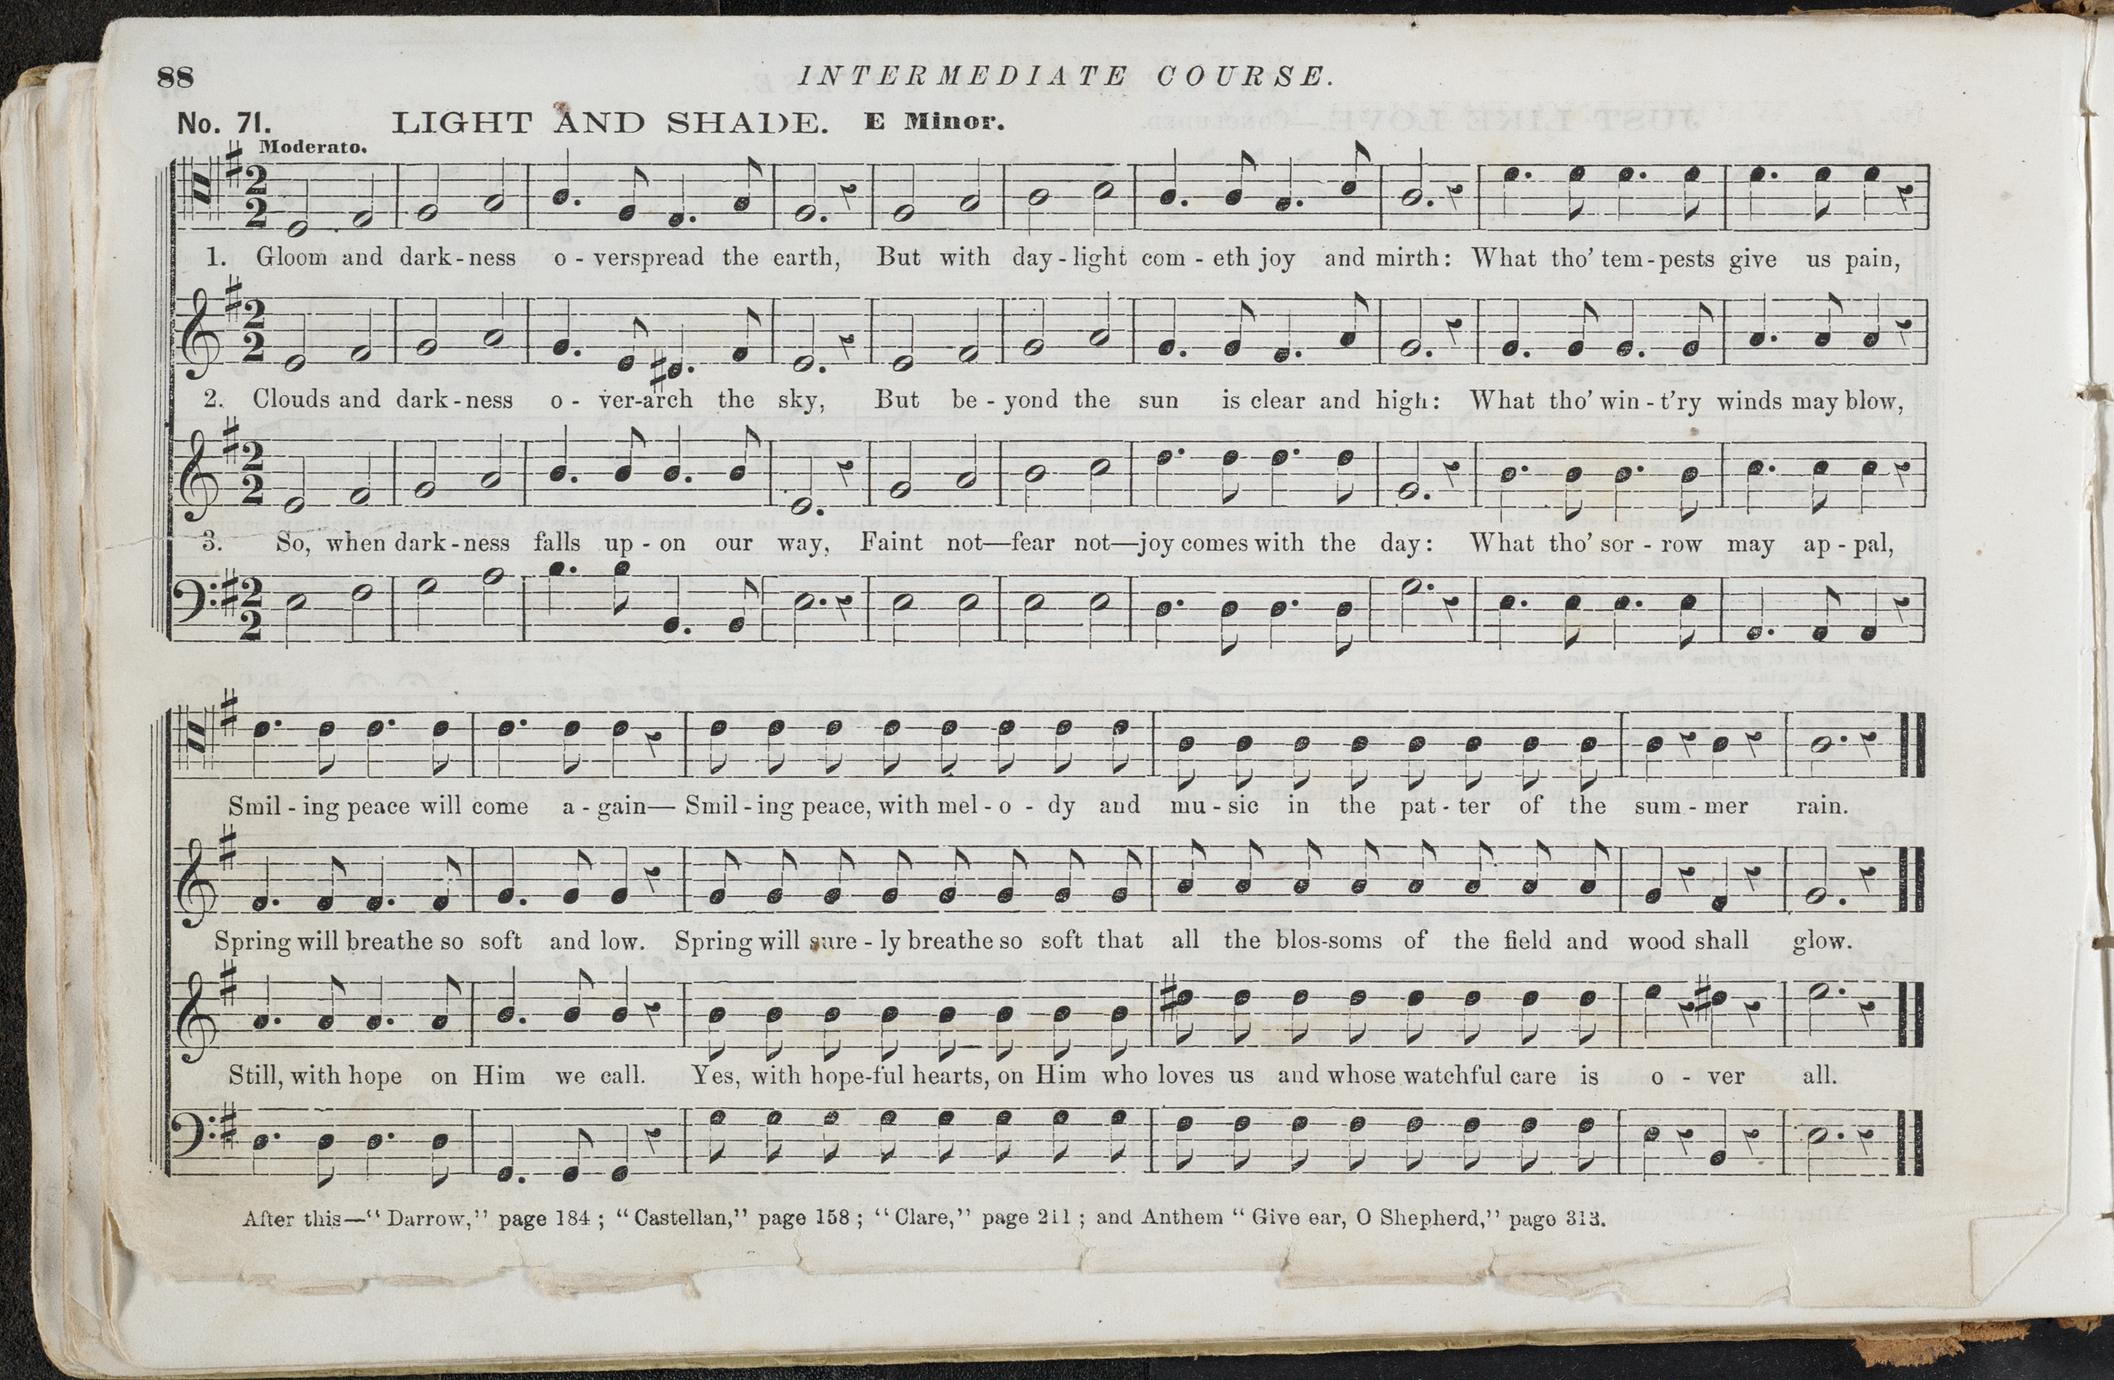 88
INTERMEDIATE COURSE.
No. 71. LIGHT AND SHADE. E Minor.
Moderato.
1. Gloom and dark - ness o - verspread the earth, But with day - light com - eth joy and mirth: What tho' tem - pests give us pain,
2. Clouds and dark - ness o - ver-arch the sky, But be - yond the sun is clear and high: What tho' win - t'ry winds may blow,
3. So, when dark - ness falls up - on our way, Faint not—fear not—joy comes with the day: What tho' sor - row may ap - pal,
Smil - ing peace will come a - gain— Smil - ing peace, with mel - o - dy and mu - sic in the pat - ter of the sum - mer rain.
Spring will breathe so soft and low. Spring will sure - ly breathe so soft that all the blos-soms of the field and wood shall glow.
Still, with hope on Him we call. Yes, with hope-ful hearts, on Him who loves us and whose watchful care is o - ver all.
After this—"Darrow," page 184; "Castellan," page 158; "Clare," page 211; and Anthem "Give ear, O Shepherd," page 313.